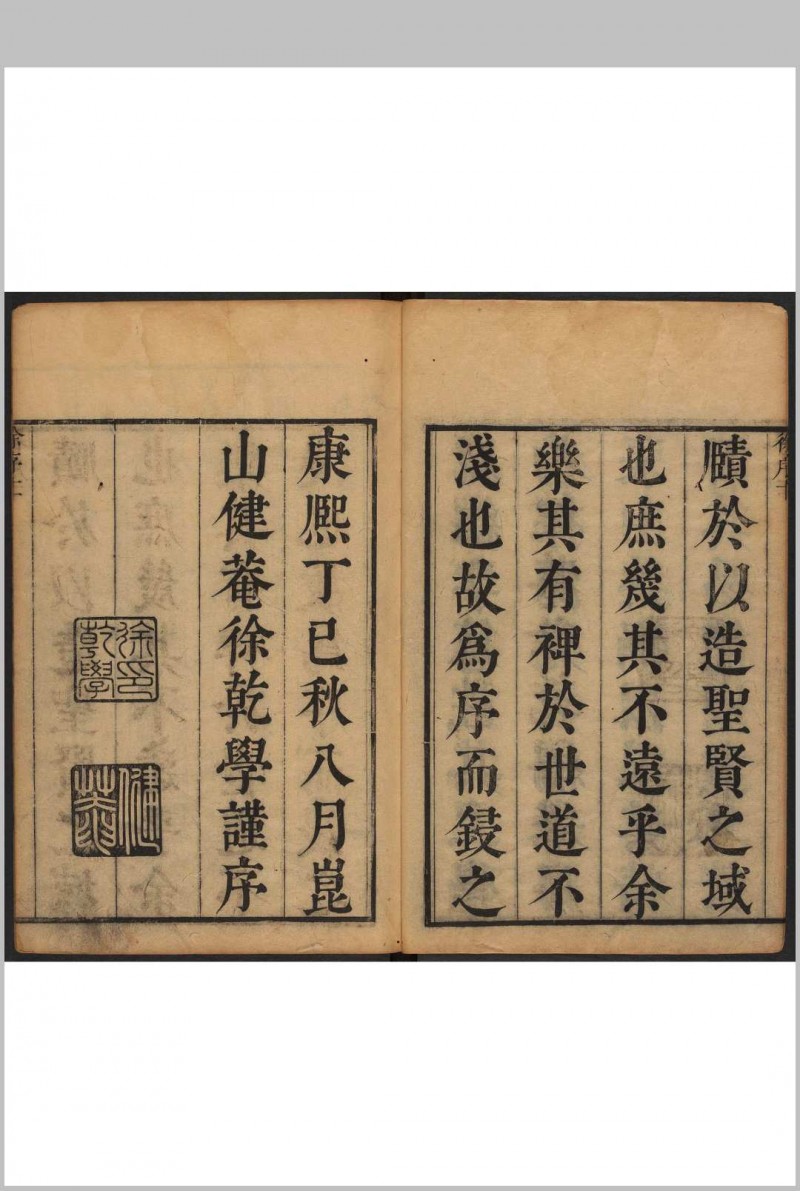 賾於以造聖賢之域
也庶幾其不遠乎余
樂其有裨於世道不
淺也故爲序而鋟之
康熙丁巳秋八月崑
山健菴徐乾學謹序
徐印
乾學
健
菴